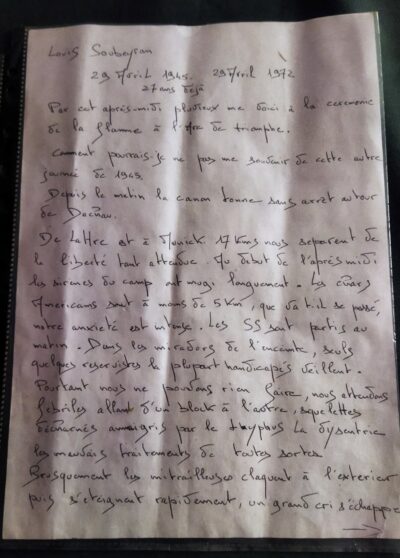 Louis Soubeyran
29 Avril 1945. 29 Avril 1972
27 ans déjà
Par cet après-midi pluvieux me voici à la ceremonie
de la flamme à l'Arc de triomphe.
Comment pourrais-je ne pas me souvenir de cette autre
journée de 1945.
Depuis le matin le canon tonne sans arret autour
de Dachau.
De Lattre est à Munick. 17 Kms nous separent de
la liberté tant attendue. Au debut de l'après midi
les sirenes du camp ont mugi longuement. Les chars
Americains sont à moins de 5 Km, que va t'il se passé,
notre anxieté est intense. Les SS sont partis au
matin. Dans les miradors de l'enceinte, seuls
quelques reservistes la plupart handicapés veillent.
Pourtant nous ne pouvons rien faire, nous attendons
febriles allant d'un block à l'autre, squelettes
décharnés amaigris par le thyphus la dysentrie
les mauvais traitements de toutes sortes.
Brusquement les mitrailleuses claquent à l'exterieur
puis s'eteignent rapidement, un grand cri s'échappe